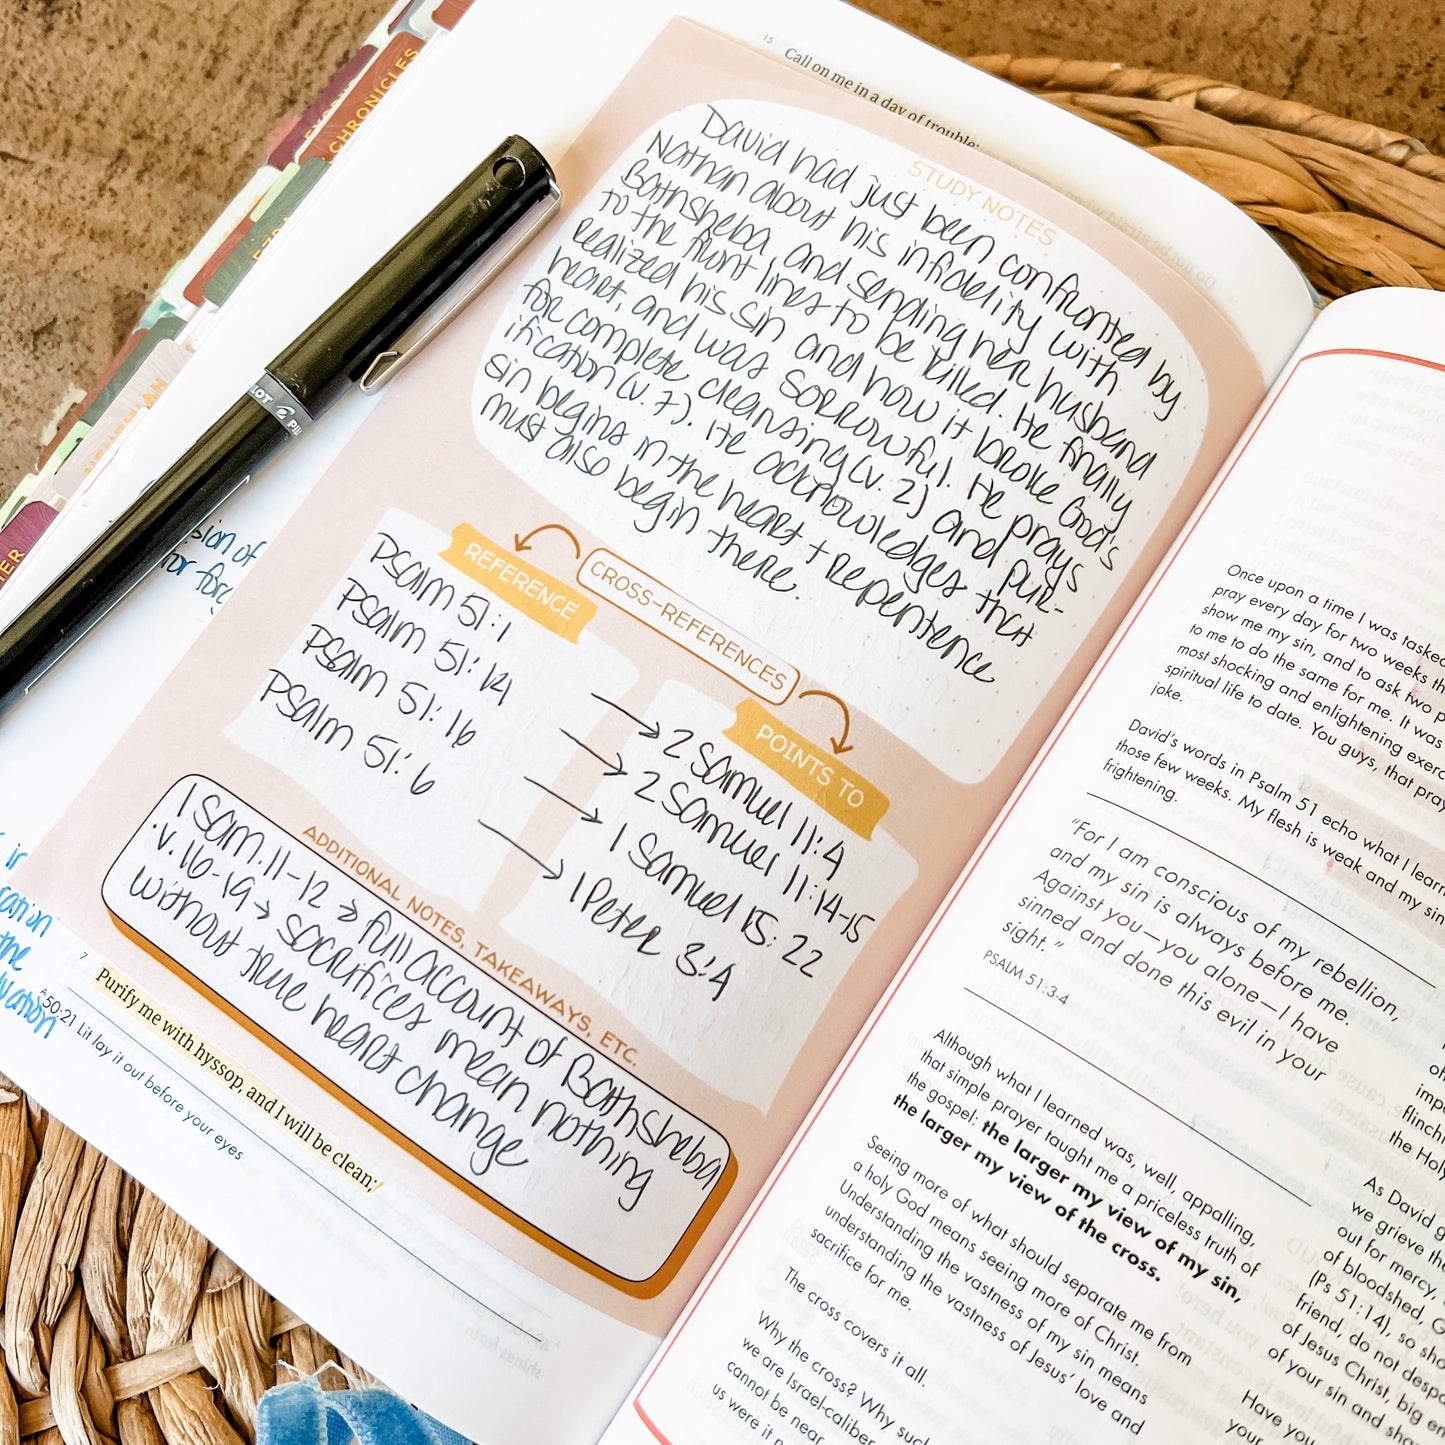 15 Call on me in a day of trouble;
STUDY NOTES
David had just been confronted by
Nathan about his infidelity with
Bathsheba and sending her husband
to the front lines to be killed. He finally
realized his sin and how it broke God's
heart, and was sorrowful. He prays
for complete cleansing (v. 2) and pur-
ification (v. 7). He acknowledges that
sin begins in the heart + repentence
must also begin there.
CROSS-REFERENCES
REFERENCE
POINTS TO
Psalm 51:1 → 2 Samuel 11:4
Psalm 51:14 → 2 Samuel 11:14-15
Psalm 51:16 → 1 Samuel 15:22
Psalm 51:6 → 1 Peter 3:4
ADDITIONAL NOTES, TAKEAWAYS, ETC.
1 Sam. 11-12 → full account of Bathsheba
·v. 16-19 → sacrifices mean nothing
without true heart change
7 Purify me with hyssop, and I will be clean;
A 50:21 Lit lay it out before your eyes
CHRONICLES
EZRA
NEHEMIAH
PILOT
sion of
the
Once upon a time I was tasked
pray every day for two weeks th
show me my sin, and to ask two p
to me to do the same for me. It was
most shocking and enlightening exerc
spiritual life to date. You guys, that pray
joke.
David's words in Psalm 51 echo what I learn
those few weeks. My flesh is weak and my sin
frightening.
"For I am conscious of my rebellion,
and my sin is always before me.
Against you—you alone—I have
sinned and done this evil in your
sight."
PSALM 51:3-4
Although what I learned was, well, appalling,
that simple prayer taught me a priceless truth of
the gospel: the larger my view of my sin,
the larger my view of the cross.
Seeing more of what should separate me from
a holy God means seeing more of Christ.
Understanding the vastness of my sin means
understanding the vastness of Jesus' love and
sacrifice for me.
The cross covers it all.
Why the cross? Why such
we are Israel-caliber
cannot be near
us were it
impo
flinchi
the Holy
As David g
we grieve the
out for mercy,
of bloodshed, G
(Ps 51:14), so sho
friend, do not despa
of Jesus Christ, big en
of your sin and sha
Have you
your